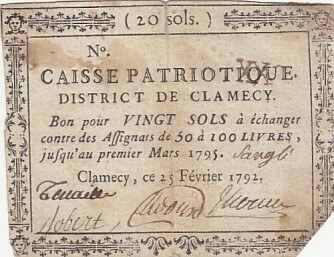 ( 20 sols. )
N°.
CAISSE PATRIOTIQUE.
DISTRICT DE CLAMECY.
Bon pour VINGT SOLS à échanger
contre des Assignats de 50 à 100 LIVRES,
jusqu'au premier Mars 1795.
Clamecy, ce 25 Février 1792.
Tenaille
Robert